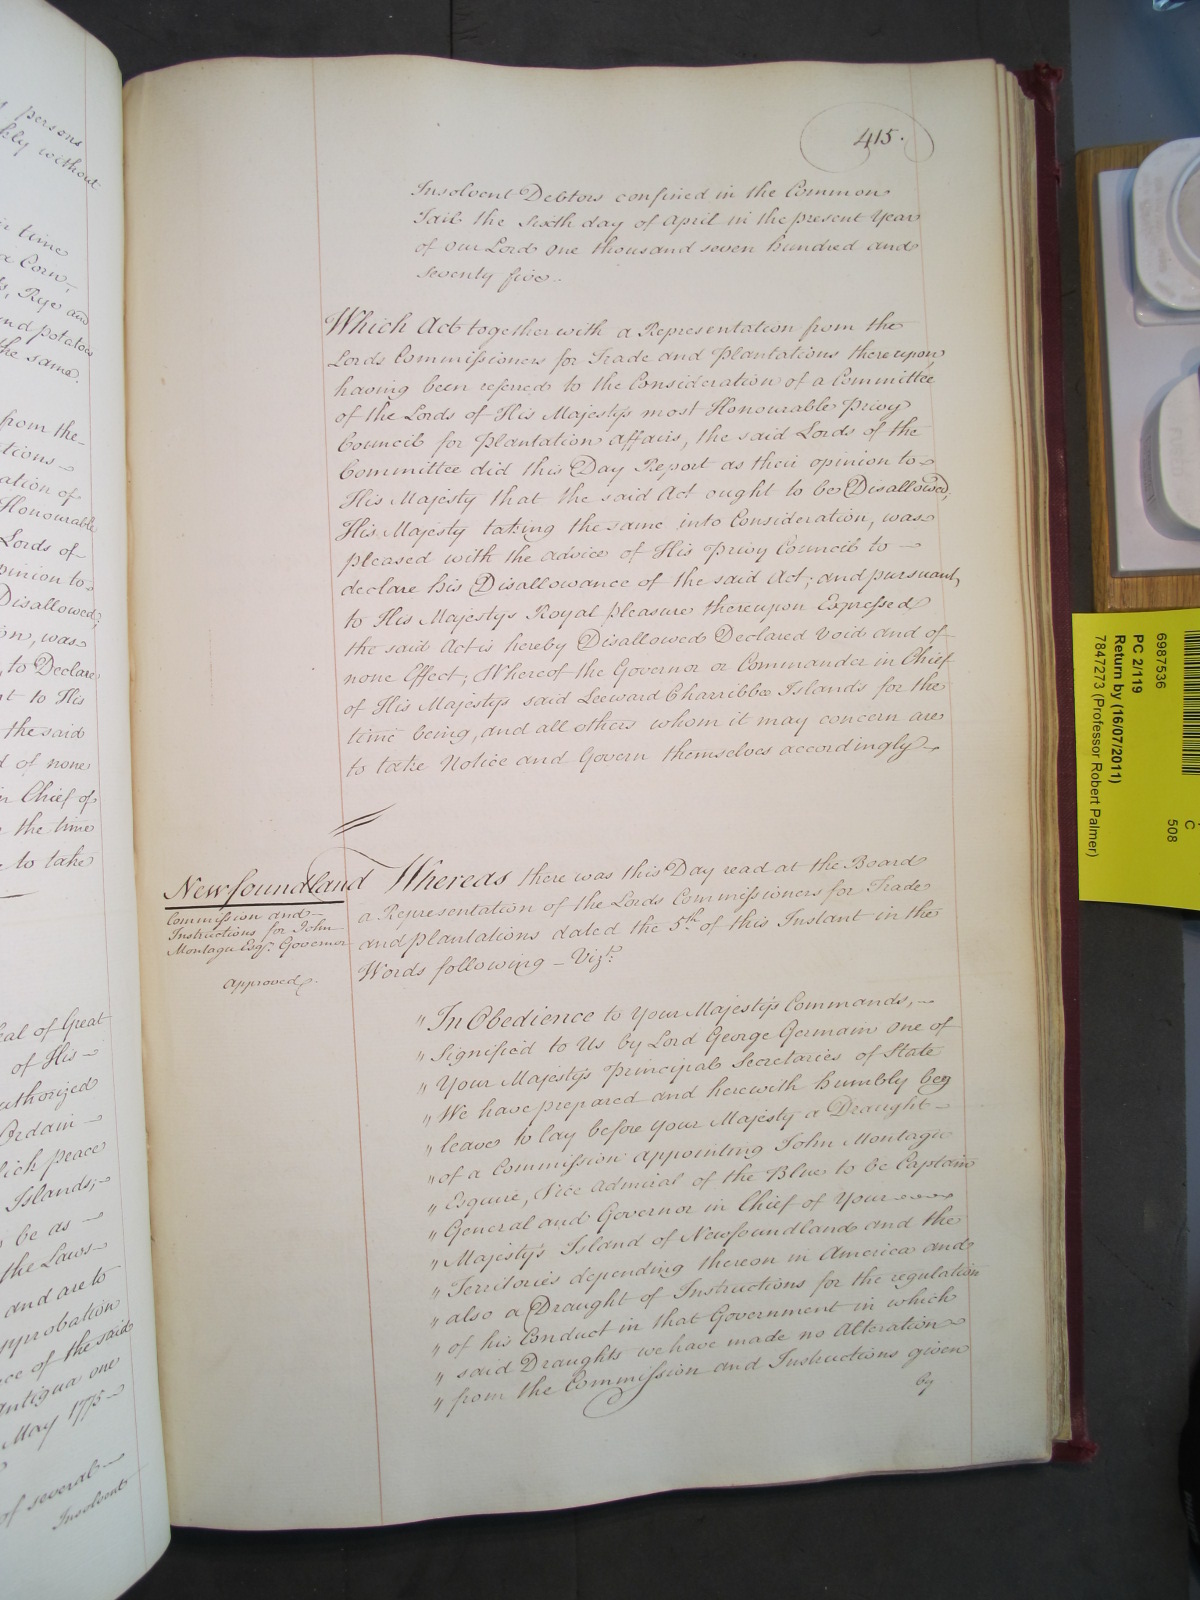 persons
kly without
in time
Corn,
s, Rye and
and potatoes
the same.
from the
tions
ation of
Honourable
Lords of
pinion to
Disallowed;
on, was
, to Declare
nt to His
the said
d of none
in Chief of
the time
to take
eal of Great
of His
uthorized
Ordain
hich peace
Islands;
be as
the Laws
and are to
pprobation
ce of the said
Antigua one
May 1775
of several
Insolvent
415.
Insolvent Debtors confined in the Common
Jail the sixth day of April in the present Year
of our Lord one thousand seven hundred and
seventy five.
Which Act together with a Representation from the
Lords Commissioners for Trade and Plantations thereupon
having been referred to the Consideration of a Committee
of the Lords of His Majestys most Honourable Privy
Council for Plantation Affairs, the said Lords of the
Committee did this Day Report as their opinion to
His Majesty that the said Act ought to be Disallowed,
His Majesty taking the same into Consideration, was
pleased with the advice of His Privy Council to
declare his Disallowance of the said Act; and pursuant
to His Majestys Royal Pleasure thereupon Expressed
the said Act is hereby Disallowed Declared void and of
none Effect; Whereof the Governor or Commander in Chief
of His Majestys said Leeward Charribbee Islands for the
time being, and all others whom it may concern are
to take Notice and Govern themselves accordingly
Newfoundland
Commission and
Instructions for John
Montagu Esqr. Governor
approved.
Whereas there was this Day read at the Board
a Representation of the Lords Commissioners for Trade
and Plantations dated the 5th of this Instant in the
Words following - Vizt.
" In Obedience to Your Majestys Commands,
" Signified to Us by Lord George Germain one of
" Your Majestys Principal Secretaries of State
" We have prepared and herewith humbly beg
" leave to lay before your Majesty a Draught
" of a Commission appointing John Montagu
" Esquire, Vice Admiral of the Blue to be Captain
" General and Governor in Chief of Your
" Majestys Island of Newfoundland and the
" Territories depending thereon in America and
" also a Draught of Instructions for the regulation
" of his Conduct in that Government in which
" said Draughts we have made no Alteration
" from the Commission and Instructions given
by
6987536
PC 2/119
Return by (16/07/2011)
7847273 (Professor Robert Palmer)
C
508